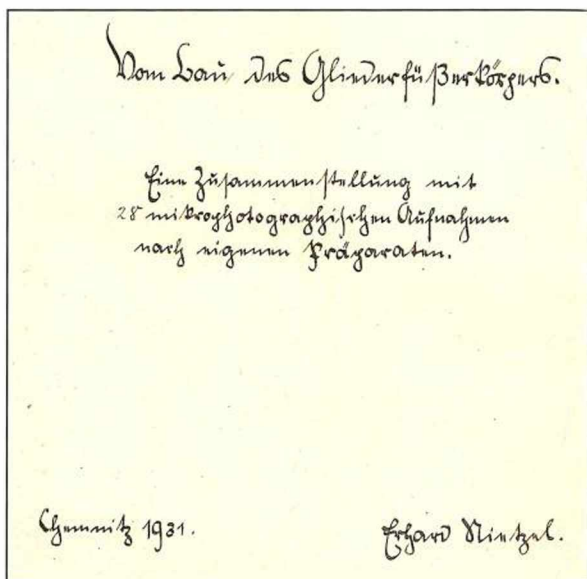 Vom Bau des Gliederfüßerkörpers.
Eine Zusammenstellung mit
28 mikrophotographischen Aufnahmen
nach eigenen Präparaten.
Chemnitz 1931.
Erhard Nietzel.